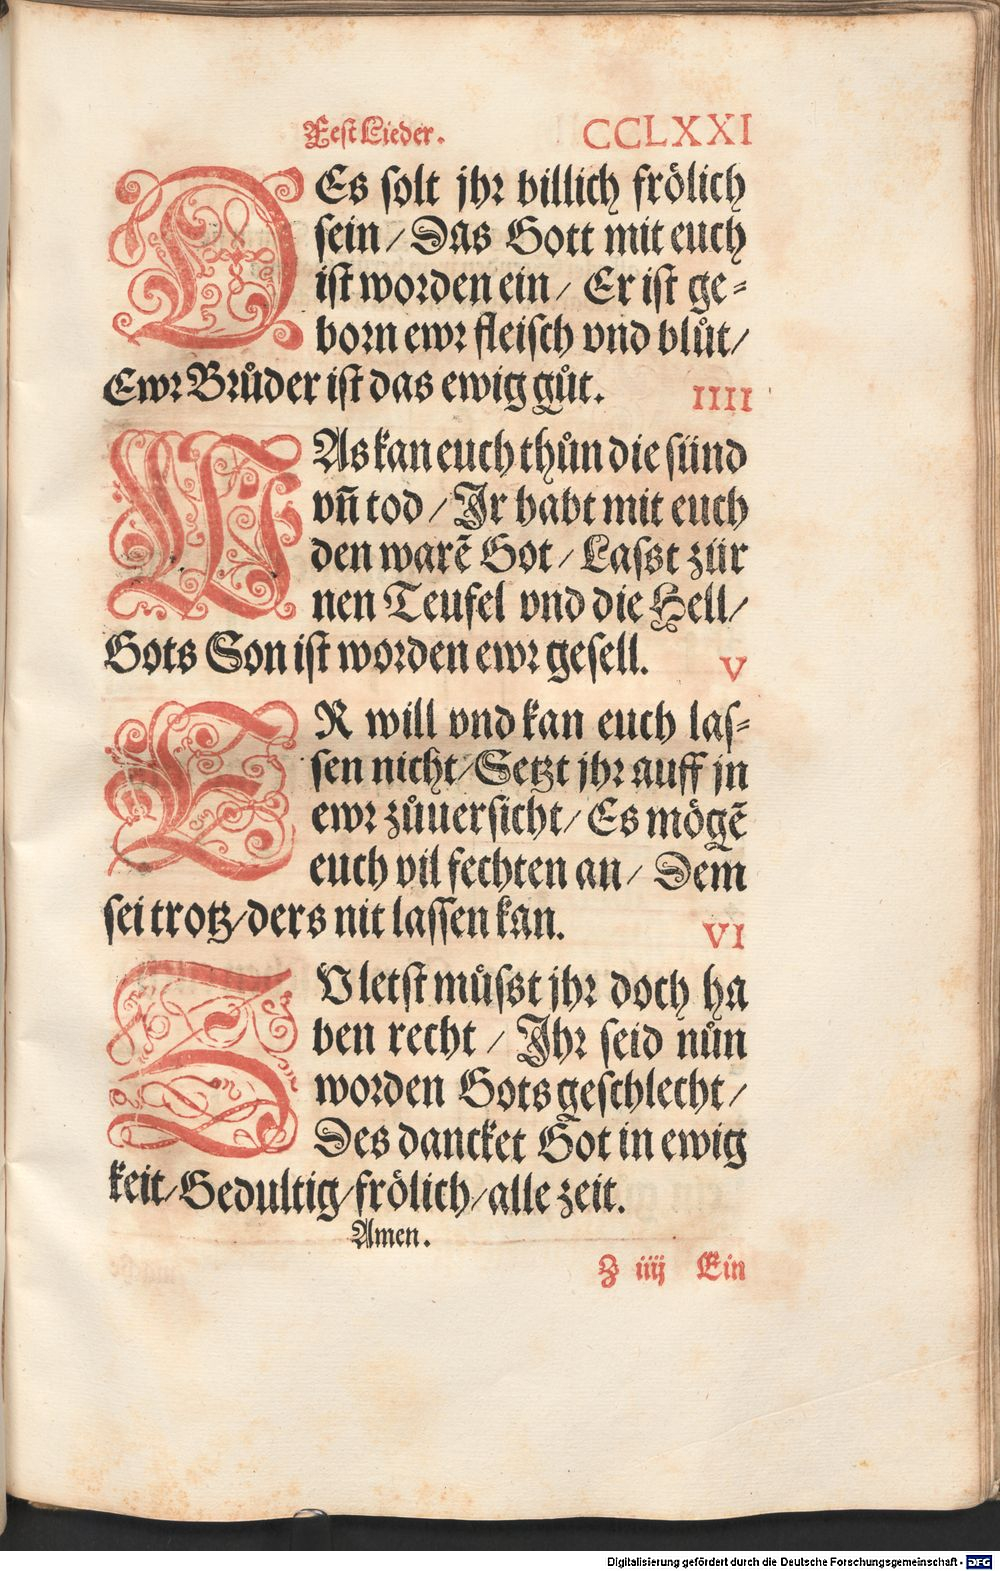 Fest Lieder. CCLXXI
DEs solt jhr billich frölich
sein / Das Gott mit euch
ist worden ein / Er ist ge=
born ewr fleisch vnd blůt /
Ewr Brůder ist das ewig gůt. IIII
WAs kan euch thůn die sünd
vñ tod / Jr habt mit euch
den warẽ Got / Lasst zür
nen Teufel vnd die Hell /
Gots Son ist worden ewr gesell. V
ER will vnd kan euch las=
sen nicht / Setzt jhr auff jn
ewr zůuersicht / Es mögẽ
euch vil fechten an / Dem
sei trotz / ders nit lassen kan. VI
ZV letst můsst jhr doch ha
ben recht / Jhr seid nůn
worden Gots geschlecht /
Des dancket Got in ewig
keit / Gedultig / frölich / alle zeit.
Amen.
Z iiij Ein
Digitalisierung gefördert durch die Deutsche Forschungsgemeinschaft - DFG